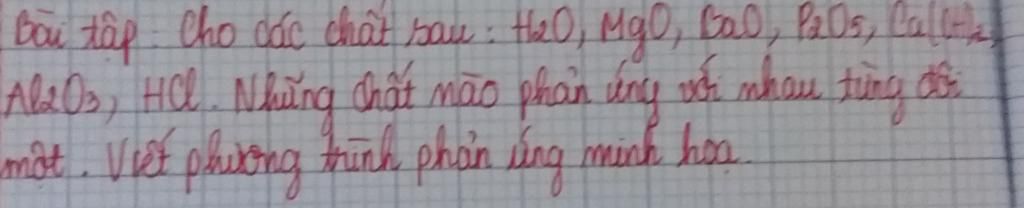 Bài tập: Cho các chất sau: H2O, MgO, BaO, P2O5, Ca(OH)2,
Al2O3, HCl. Những chất nào phản ứng với nhau từng đôi
một. Viết phương trình phản ứng minh hoạ.